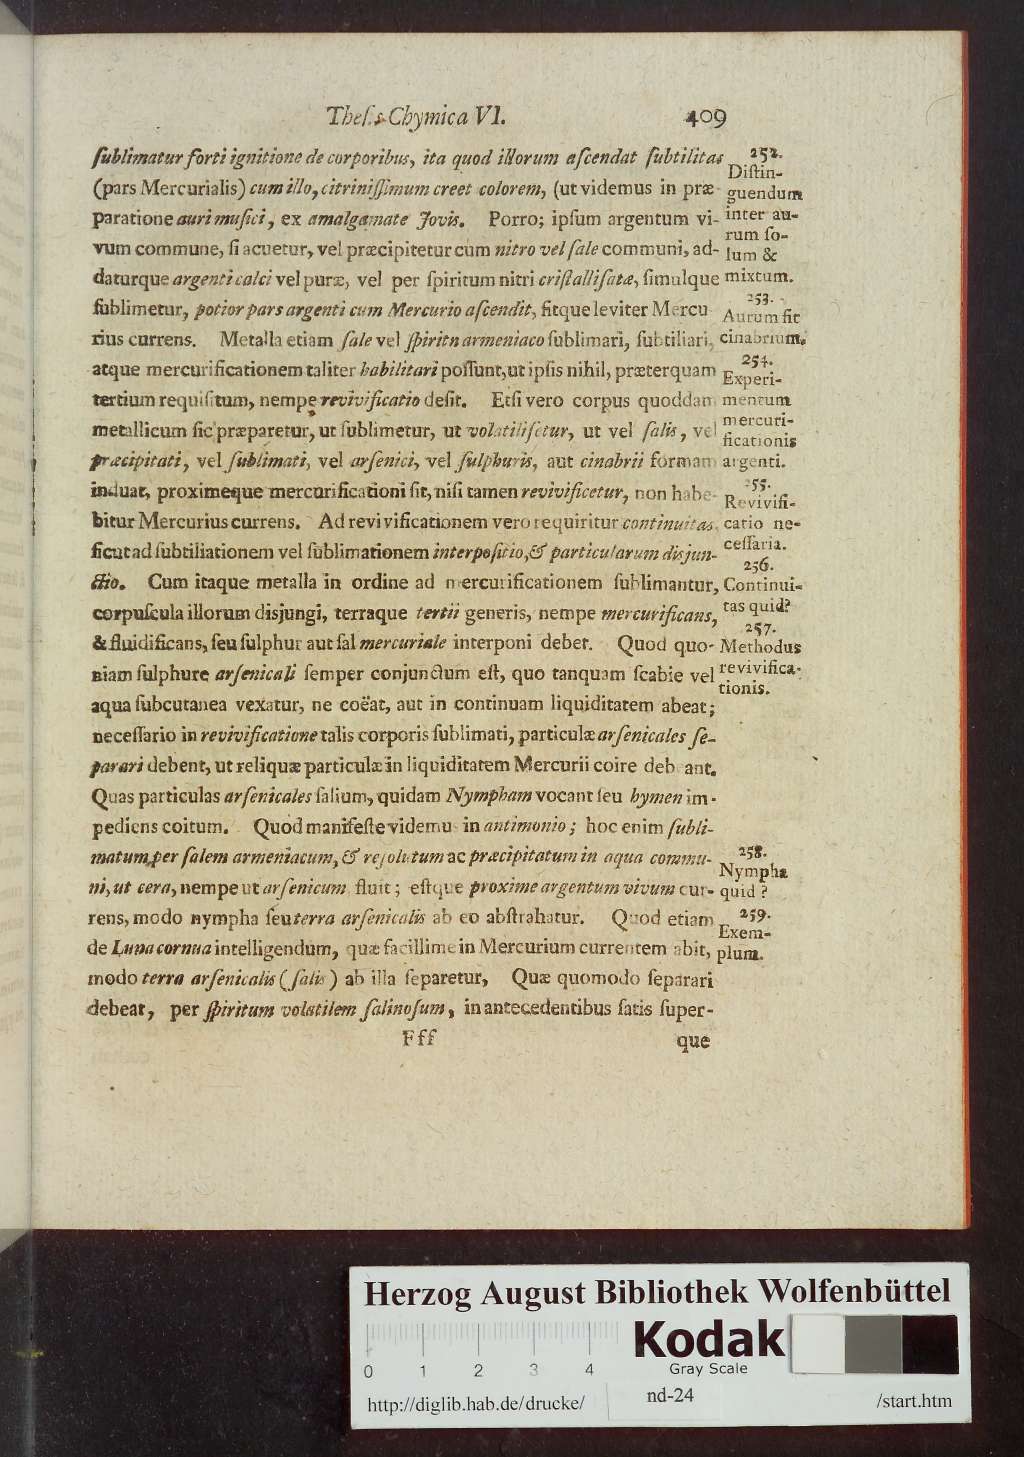 Theſis Chymica VI. 409
ſublimatur forti ignitione de corporibus, ita quod illorum aſcendat ſubtilitas
(pars Mercurialis) cum illo, citriniſſimum creet colorem, (ut videmus in præ-
paratione auri muſici, ex amalgamate Jovis. Porro; ipſum argentum vi-
vum commune, ſi acuetur, vel præcipitetur cum nitro vel ſale communi, ad-
daturque argenti calci vel puræ, vel per ſpiritum nitri criſtalliſatæ, ſimulque
ſublimetur, potior pars argenti cum Mercurio aſcendit, fitque leviter Mercu
rius currens. Metalla etiam ſale vel ſpiritn armeniaco ſublimari, ſubtiliari,
atque mercurificationem taliter habilitari poſſunt, ut ipſis nihil, præterquam
tertium requiſitum, nempe revivificatio deſit. Etſi vero corpus quoddam
metallicum ſic præparetur, ut ſublimetur, ut volatiliſetur, ut vel ſalis, vel
præcipitati, vel ſublimati, vel arſenici, vel ſulphuris, aut cinabrii formam
induat, proximeque mercurificationi ſit, niſi tamen revivificetur, non habe-
bitur Mercurius currens. Ad revivificationem vero requiritur continuitas,
ſicut ad ſubtiliationem vel ſublimationem interpoſitio, & particularum disjun-
ctio. Cum itaque metalla in ordine ad mercurificationem ſublimantur,
corpuſcula illorum disjungi, terraque tertii generis, nempe mercurificans,
& fluidificans, ſeu ſulphur aut ſal mercuriale interponi debet. Quod quo-
niam ſulphure arſenicali ſemper conjunctum eſt, quo tanquam ſcabie vel
aqua ſubcutanea vexatur, ne coëat, aut in continuam liquiditatem abeat;
neceſſario in revivificatione talis corporis ſublimati, particulæ arſenicales ſe-
parari debent, ut reliquæ particulæ in liquiditatem Mercurii coire debeant.
Quas particulas arſenicales ſalium, quidam Nympham vocant ſeu hymen im-
pediens coitum. Quod manifeſte videmus in antimonio; hoc enim ſubli-
matum, per ſalem armeniacum, & reſolutum ac præcipitatum in aqua commu-
ni, ut cera, nempe ut arſenicum fluit; eſtque proxime argentum vivum cur-
rens, modo nympha ſeu terra arſenicalis ab eo abſtrahatur. Quod etiam
de Luna cornua intelligendum, quæ facillime in Mercurium currentem abit,
modo terra arſenicalis (ſalis) ab illa ſeparetur, Quæ quomodo ſeparari
debeat, per ſpiritum volatilem ſalinoſum, in antecedentibus ſatis ſuper-
Fff que
252.
Diſtin-
guendum
inter au-
rum ſo-
lum &
mixtum.
253.
Aurum fit
cinabrium.
254.
Experi-
mentum
mercuri-
ficationis
argenti.
255.
Revivifi-
catio ne-
ceſſaria.
256.
Continui-
tas quid?
257.
Methodus
revivifica-
tionis.
258.
Nympha
quid?
259.
Exem-
plum.
Herzog August Bibliothek Wolfenbüttel
0 1 2 3 4
Kodak
Gray Scale
http://diglib.hab.de/drucke/ nd-24 /start.htm